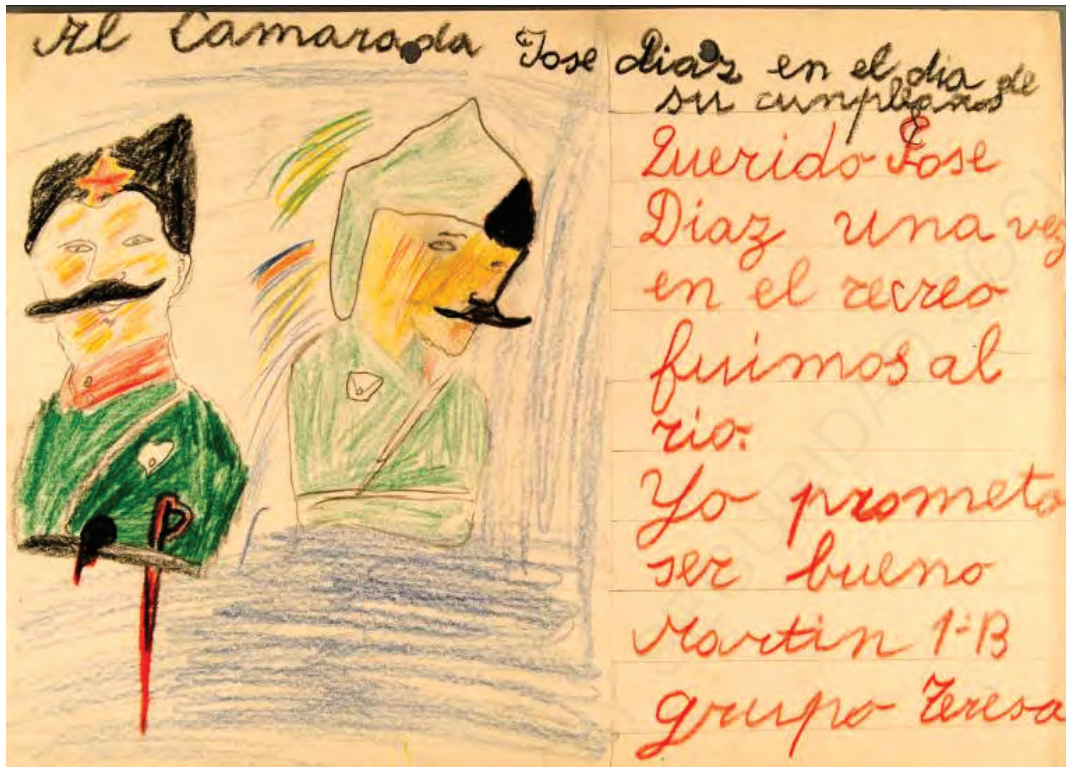 Al Camarada Jose Diaz en el dia de
su cunpleaños
Querido Jose
Diaz una vez
en el recreo
fuimos al
rio.
Yo prometo
ser bueno
Martin 1º B
grupo Teresa